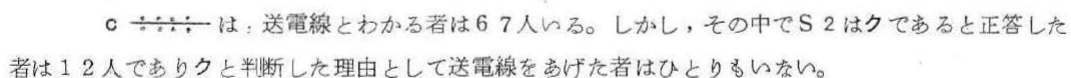 c は：送電線とわかる者は67人いる。しかし，その中でS2はクであると正答した
者は12人でありクと判断した理由として送電線をあげた者はひとりもいない。